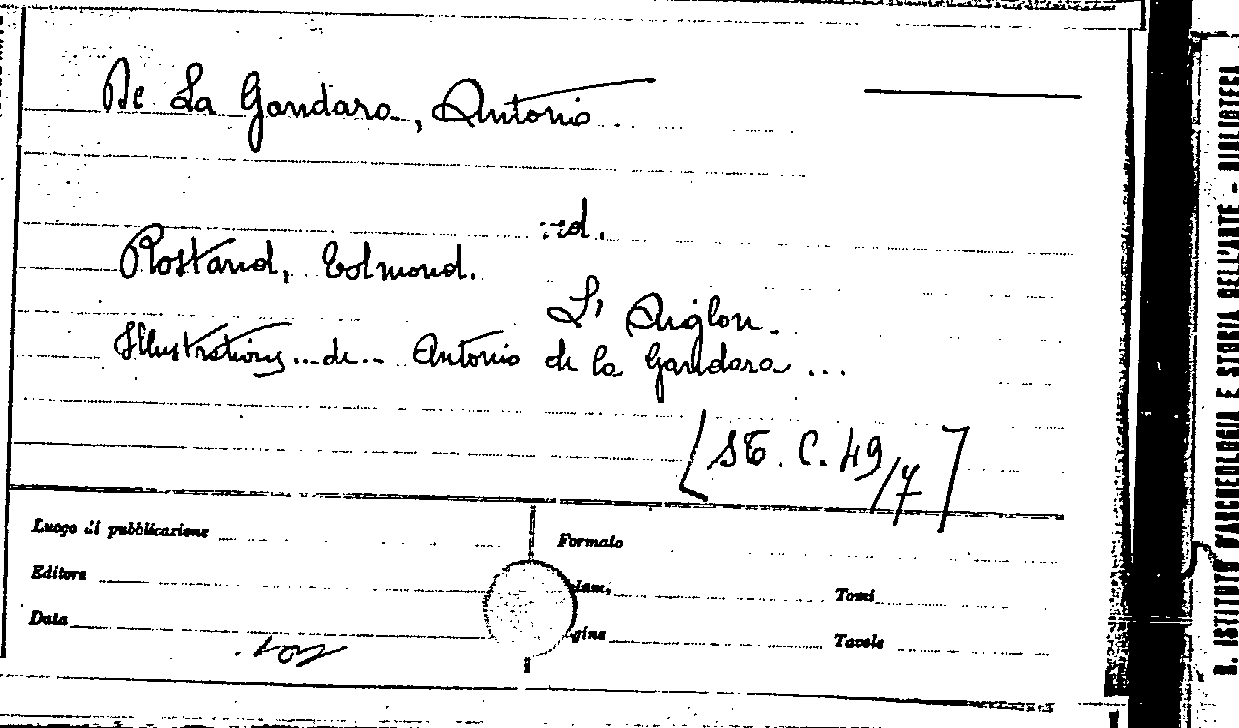 De La Gandara, Antonio
vd.
Rostand, Edmond.
L'Aiglon.
Illustrations... de... Antonio de la Gandara...
[St. C. 49/7]
Luogo di pubblicazione
Formato
Editore
Tomi
Data
Tavole
R. ISTITUTO D'ARCHEOLOGIA E STORIA DELL'ARTE - BIBLIOTECA